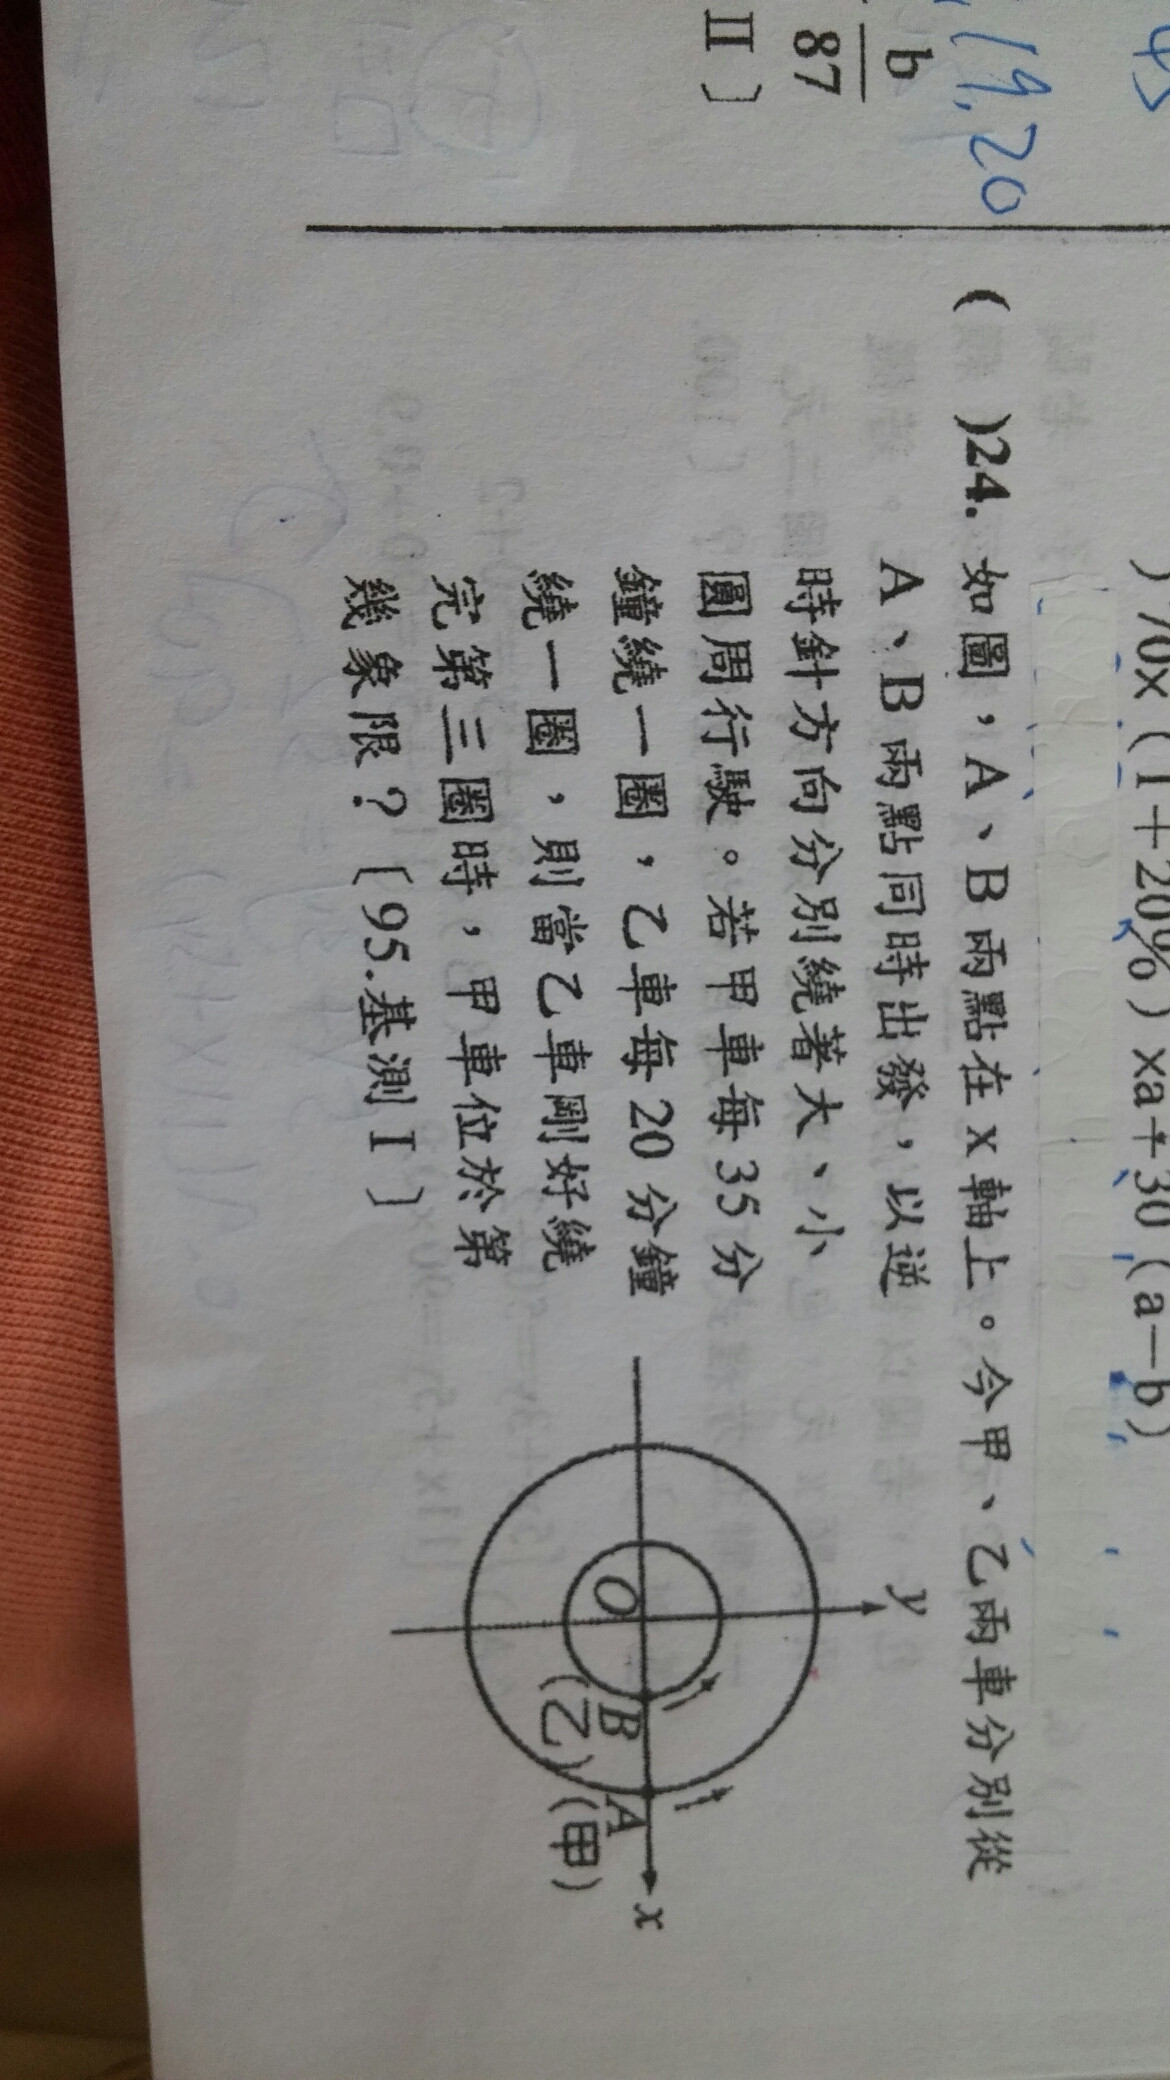 45
19,20
b
87
II〕
)70x(1+20%)xa+30(a-b)
( )24. 如圖，A、B兩點在x軸上。今甲、乙兩車分別從
A、B兩點同時出發，以逆
時針方向分別繞著大、小
圓周行駛。若甲車每35分
鐘繞一圈，乙車每20分鐘
繞一圈，則當乙車剛好繞
完第三圈時，甲車位於第
幾象限？〔95.基測I〕
y
O
B
A
x
(乙)
(甲)